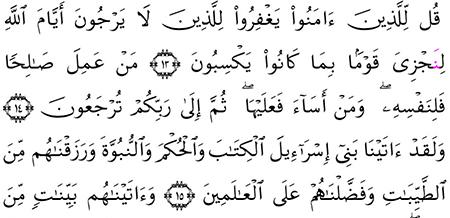 قُل لِّلَّذِينَ ءَامَنُوا۟ يَغْفِرُوا۟ لِلَّذِينَ لَا يَرْجُونَ أَيَّامَ ٱللَّهِ
لِنَجْزِىَ قَوْمًۢا بِمَا كَانُوا۟ يَكْسِبُونَ ﴿١٣﴾ مَنْ عَمِلَ صَـٰلِحًا
فَلِنَفْسِهِۦ ۖ وَمَنْ أَسَآءَ فَعَلَيْهَا ۖ ثُمَّ إِلَىٰ رَبِّكُمْ تُرْجَعُونَ ﴿١٤﴾
وَلَقَدْ ءَاتَيْنَا بَنِىٓ إِسْرَٰٓءِيلَ ٱلْكِتَـٰبَ وَٱلْحُكْمَ وَٱلنُّبُوَّةَ وَرَزَقْنَـٰهُم مِّنَ
ٱلطَّيِّبَـٰتِ وَفَضَّلْنَـٰهُمْ عَلَى ٱلْعَـٰلَمِينَ ﴿١٥﴾ وَءَاتَيْنَـٰهُم بَيِّنَـٰتٍ مِّنَ